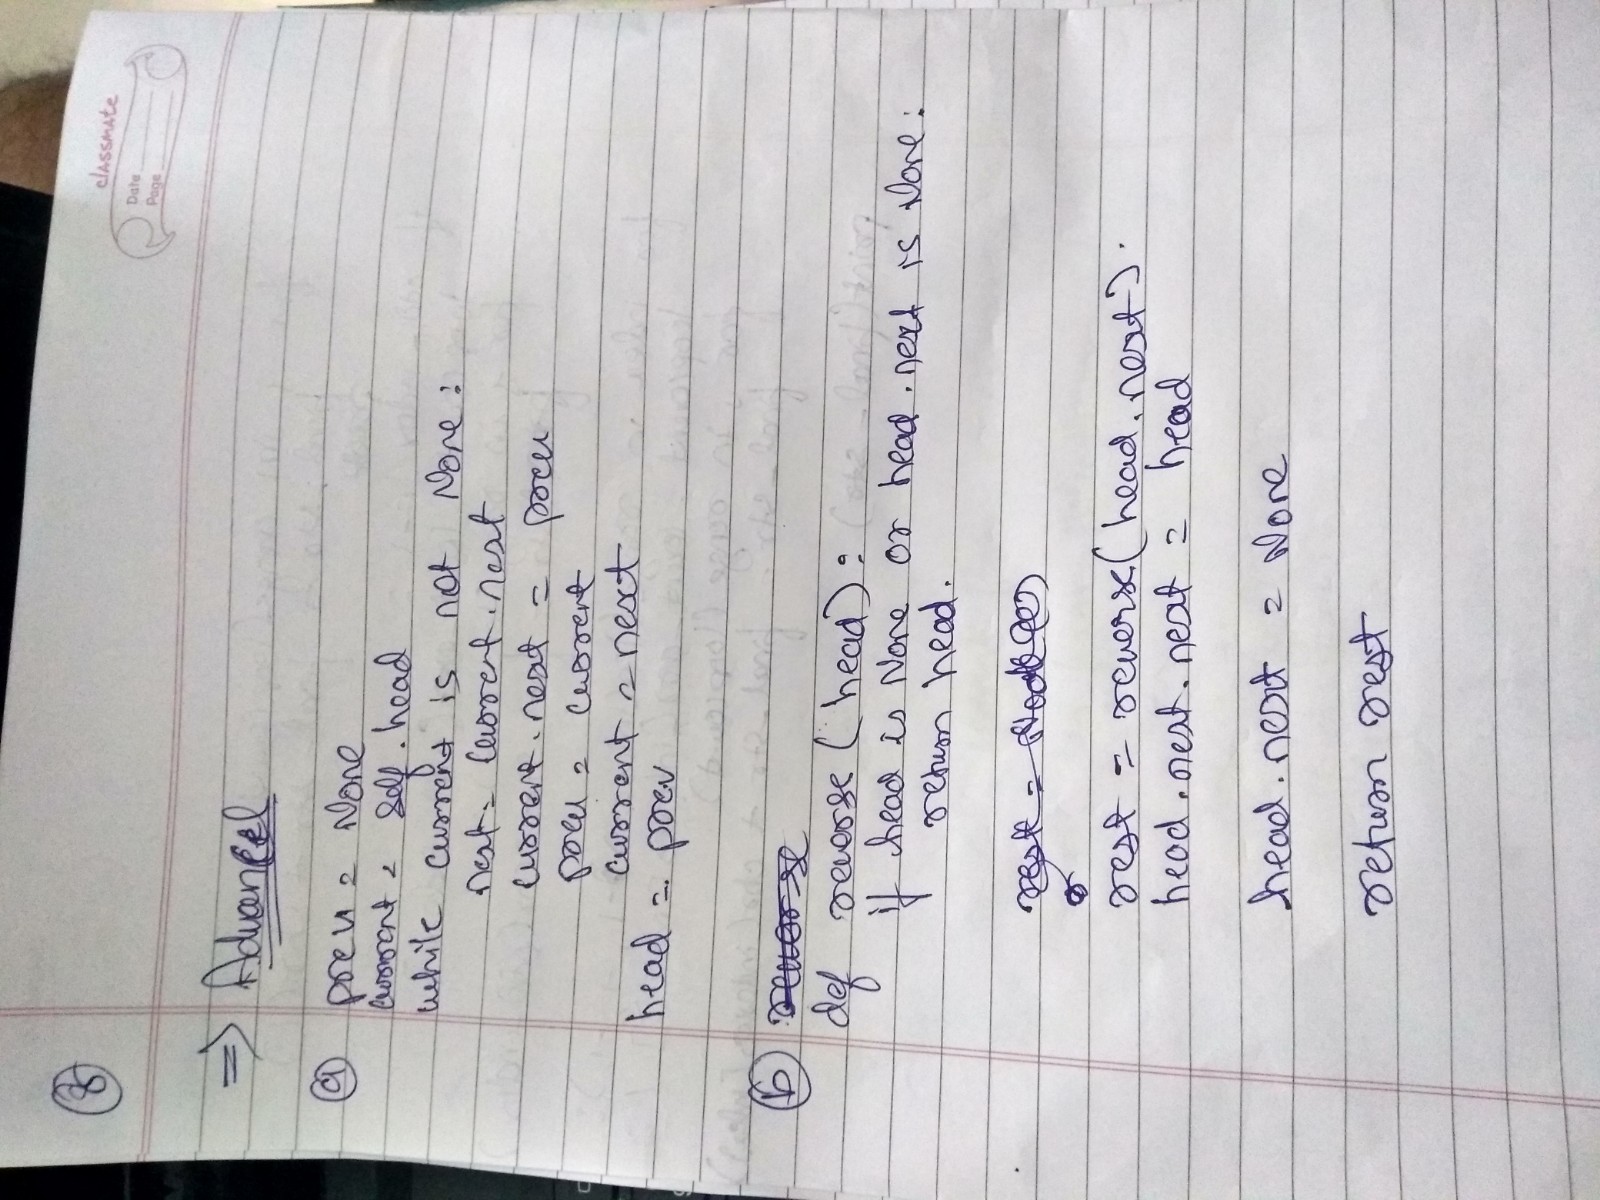 classmate
Date
Page
8
=> Advanced
a) prev = None
current = self.head
while current is not None:
next = current.next
current.next = prev
prev = current
current = next
head = prev
b) reverse
def reverse (head):
if head is None or head.next is None:
return head.
rest =
rest = reverse(head.next).
head.next.next = head
head.next = None
return rest